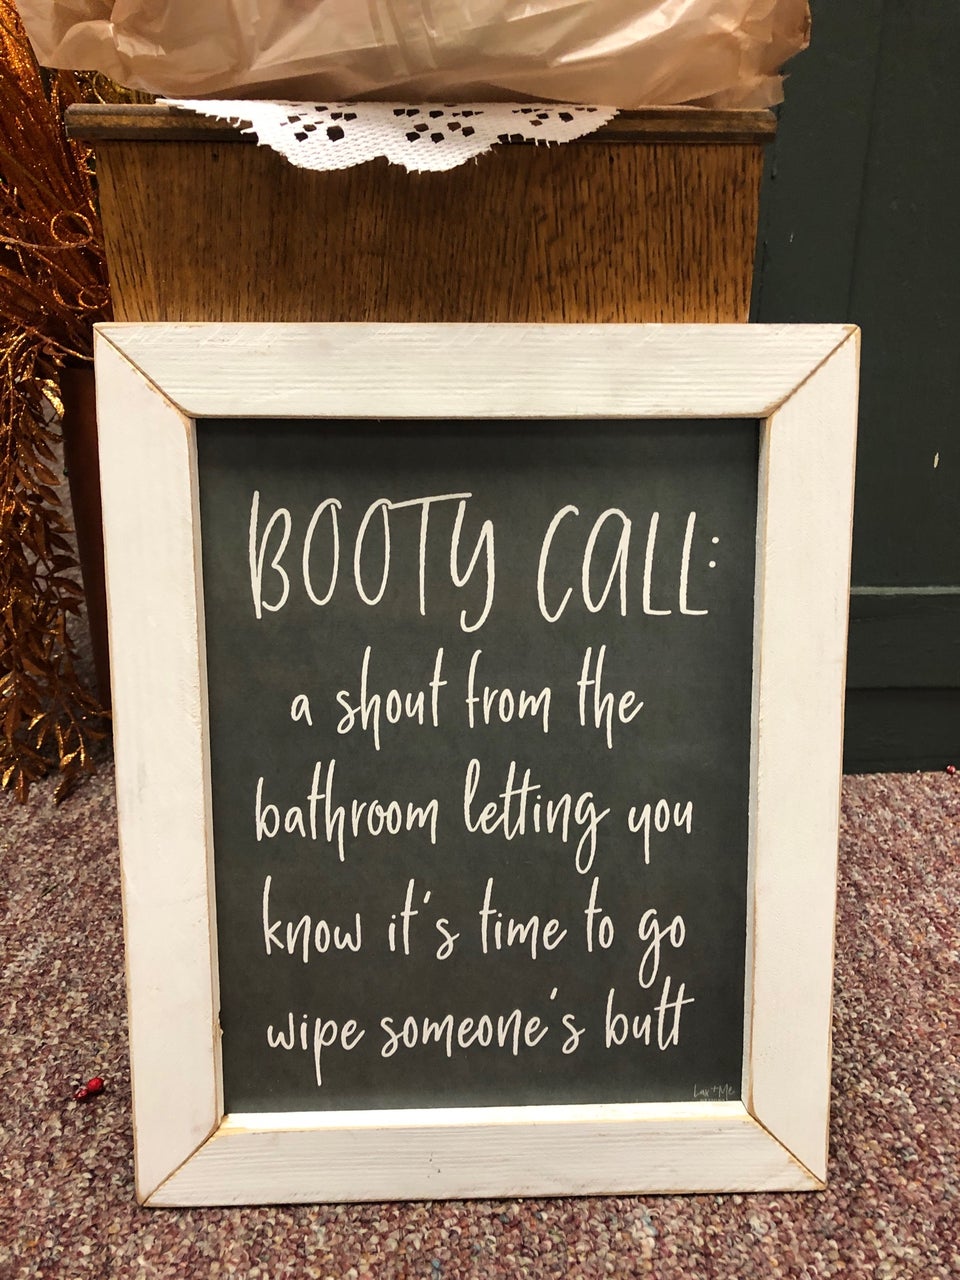 BOOTY CALL:
a shout from the
bathroom letting you
know it's time to go
wipe someone's butt
Lux + Me